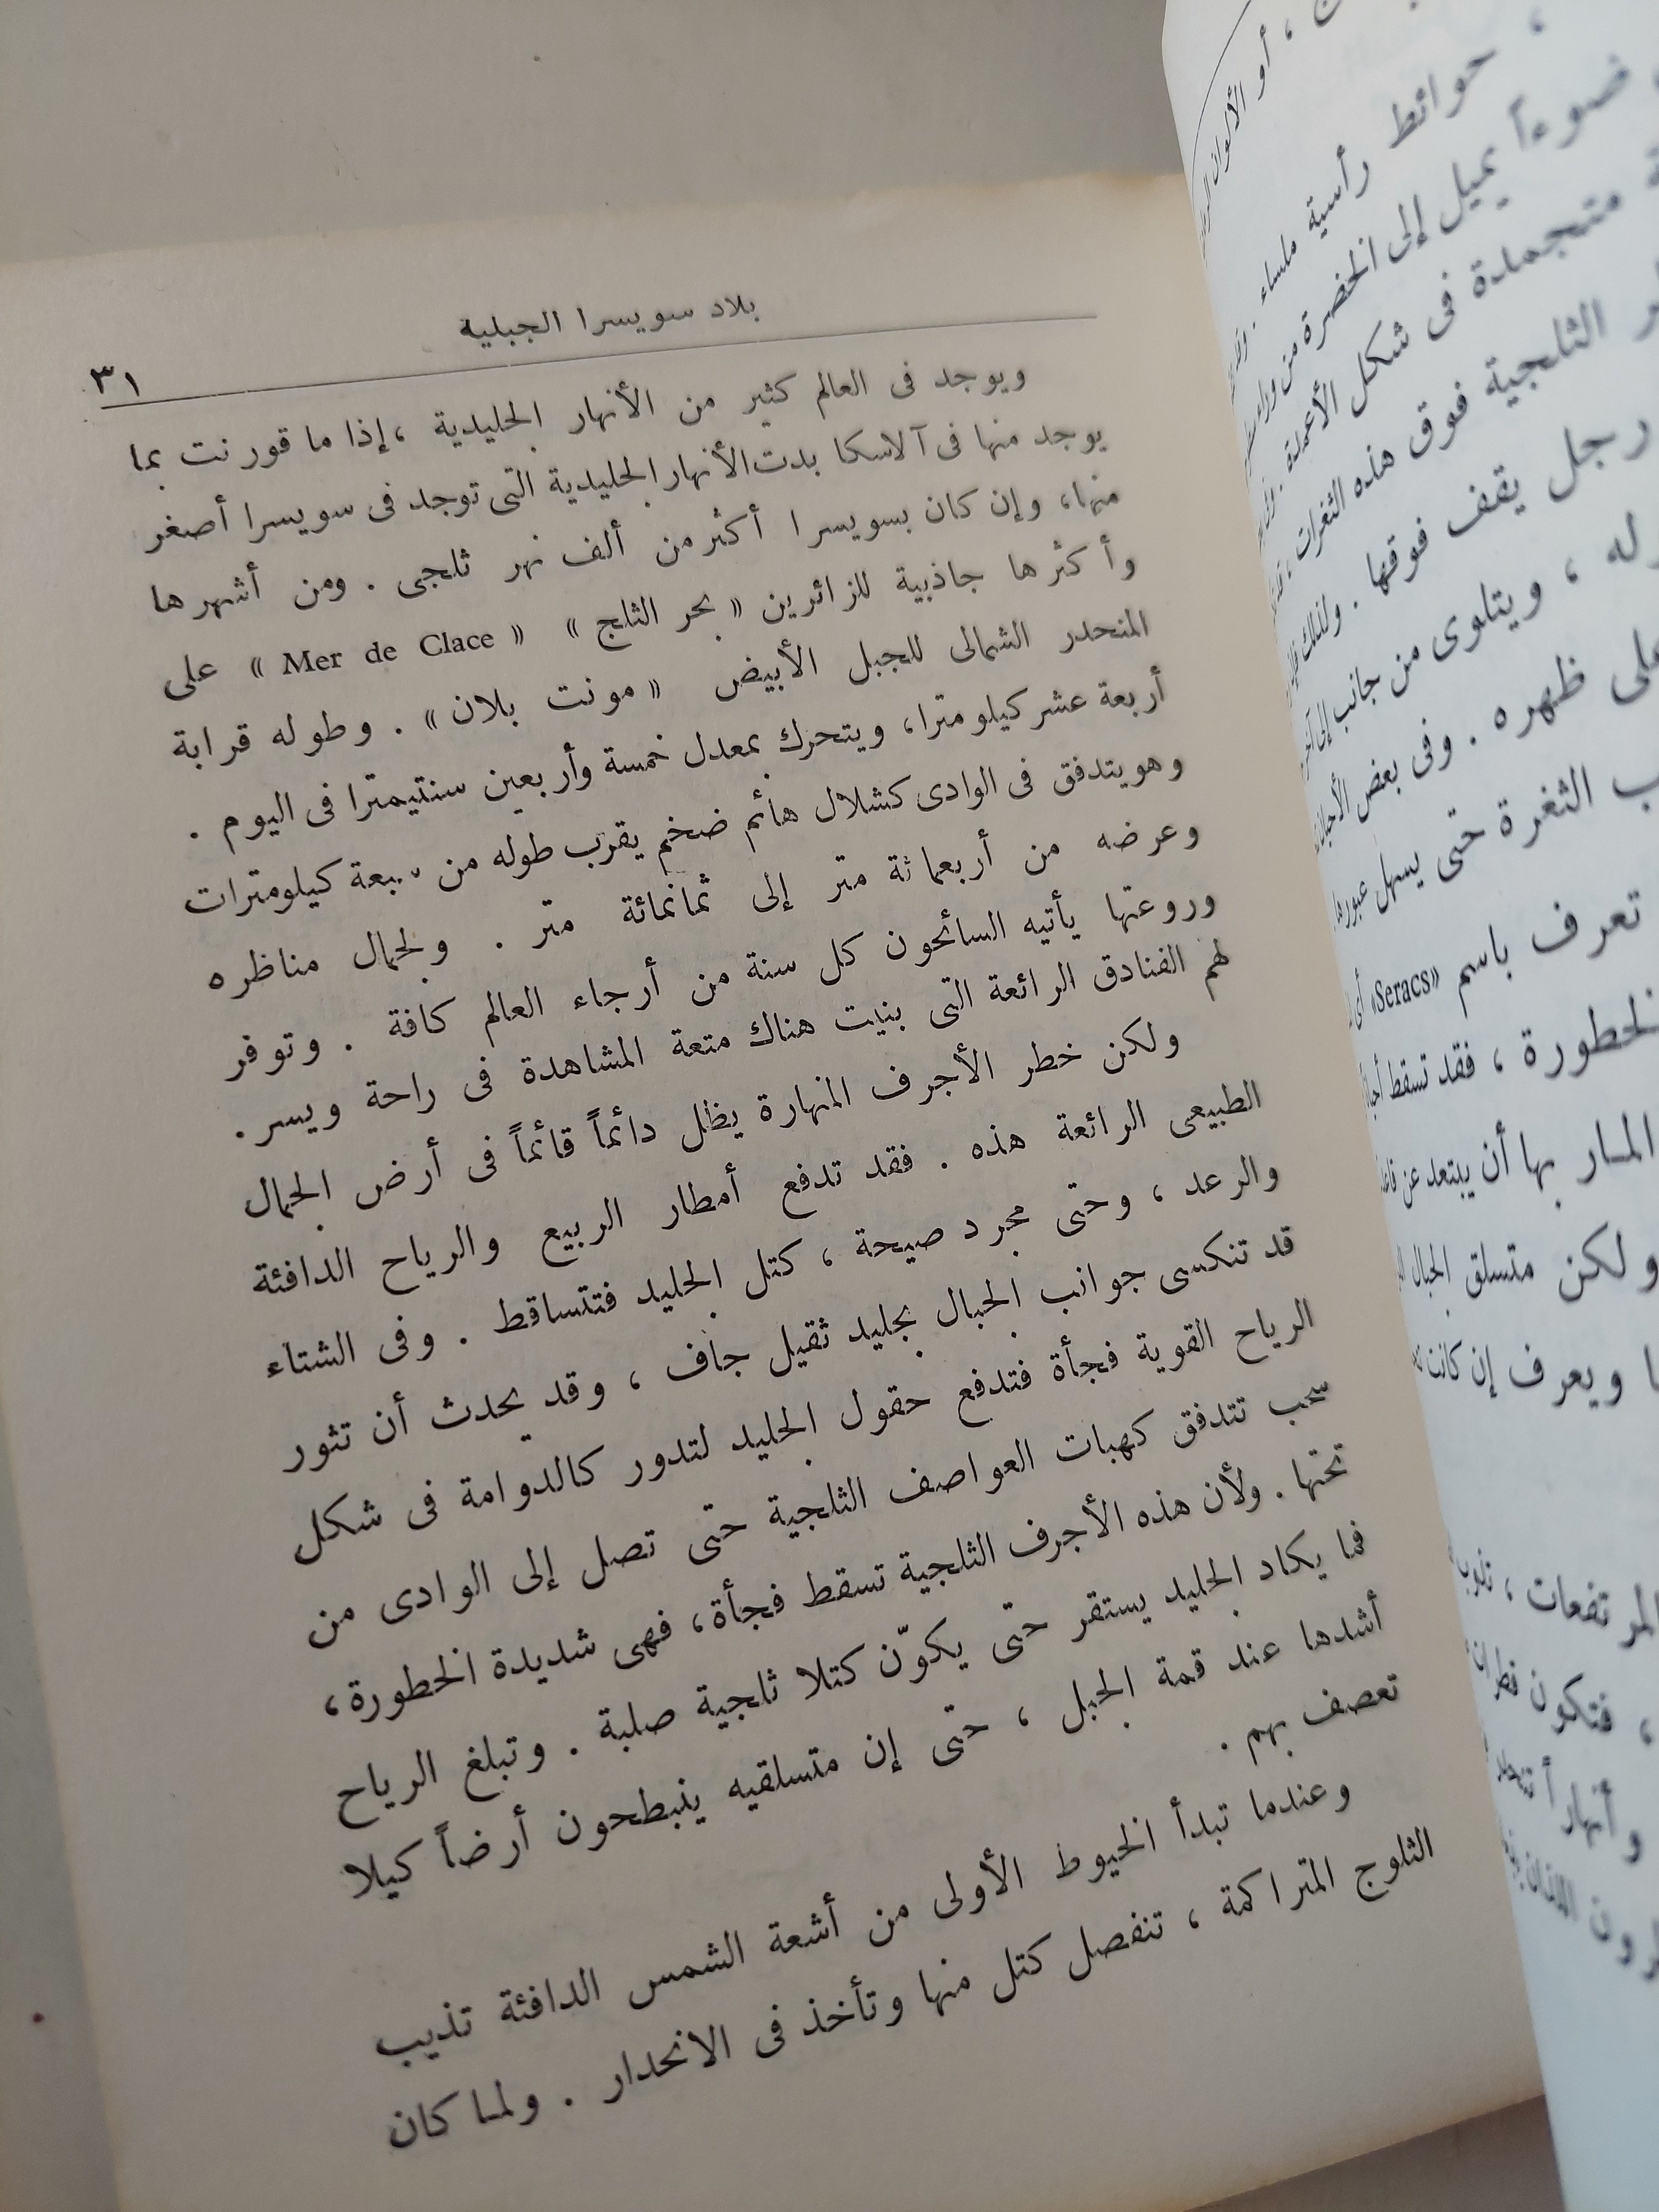 بلاد سويسرا الجبلية
٣١
ويوجد فى العالم كثير من الأنهار الجليدية ، إذا ما قورنت بما
يوجد منها فى آلاسكا بدت الأنهار الجليدية التى توجد فى سويسرا أصغر
منها، وإن كان بسويسرا أكثر من ألف نهر ثلجى . ومن أشهرها
وأكثرها جاذبية للزائرين « بحر الثلج » « Mer de Clace » على
المنحدر الشمالى للجبل الأبيض « مونت بلان » . وطوله قرابة
أربعة عشر كيلو مترا، ويتحرك بمعدل خمسة وأربعين سنتيمترا فى اليوم .
وهو يتدفق فى الوادى كشلال هائم ضخم يقرب طوله من سبعة كيلومترات
وعرضه من أربعمائة متر إلى ثمانمائة متر . ولجمال مناظره
وروعتها يأتيه السائحون كل سنة من أرجاء العالم كافة . وتوفر
لهم الفنادق الرائعة التى بنيت هناك متعة المشاهدة فى راحة ويسر.
ولكن خطر الأجرف المنهارة يظل دائماً قائماً فى أرض الجمال
الطبيعى الرائعة هذه . فقد تدفع أمطار الربيع والرياح الدافئة
والرعد ، وحتى مجرد صيحة ، كتل الجليد فتتساقط . وفى الشتاء
قد تنكسى جوانب الجبال بجليد ثقيل جاف ، وقد يحدث أن تثور
الرياح القوية فجأة فتدفع حقول الجليد لتدور كالدوامة فى شكل
سحب تتدفق كهبات العواصف الثلجية حتى تصل إلى الوادى من
تحتها . ولأن هذه الأجرف الثلجية تسقط فجأة، فهى شديدة الخطورة،
فما يكاد الجليد يستقر حتى يكوّن كتلا ثلجية صلبة . وتبلغ الرياح
أشدها عند قمة الجبل ، حتى إن متسلقيه ينبطحون أرضاً كيلا
تعصف بهم .
وعندما تبدأ الخيوط الأولى من أشعة الشمس الدافئة تذيب
الثلوج المتراكمة ، تنفصل كتل منها وتأخذ فى الانحدار . ولما كان
، أو الألوان
، حوائط رأسية ملساء .
ضوءاً يميل إلى الخضرة من وراء
متجمدة فى شكل الأعمدة .
الثلجية فوق هذه الثغرات ،
رجل يقف فوقها . ولذلك
له ، ويتلوى من جانب إلى
على ظهره . وفى بعض
الثغرة حتى يسهل
تعرف باسم «Seracs»
الخطورة ، فقد تسقط
المار بها أن يبتعد عن
ولكن متسلق الجبال
ويعرف إن كانت
المرتفعات ،
، فتكون
وأنهاراً